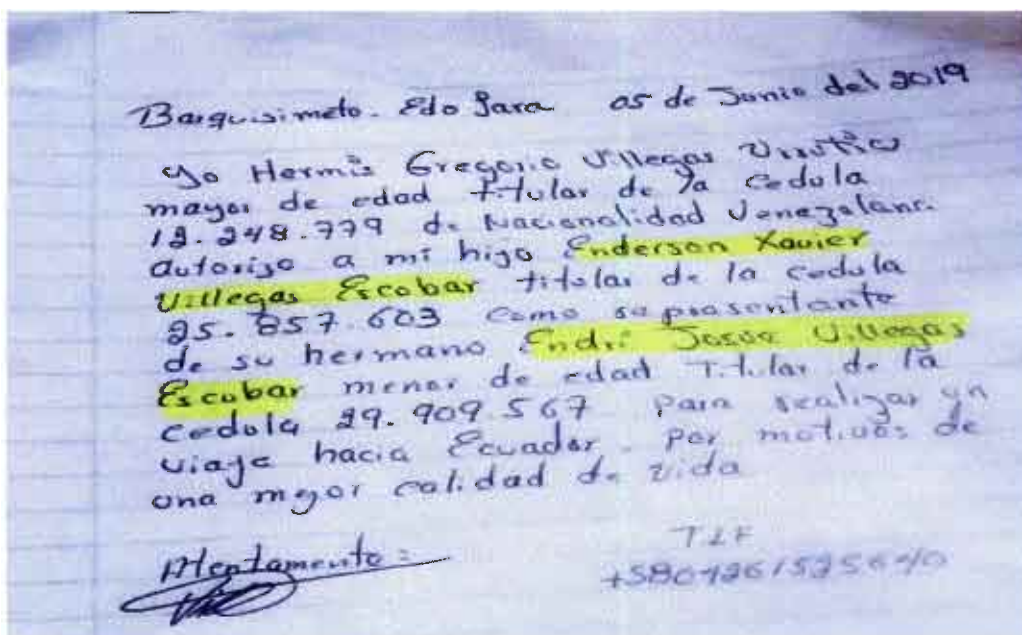 Barquisimeto. Edo Lara 05 de Junio del 2019
Yo Hermis Gregorio Villegas
mayor de edad titular de la cedula
12.248.779 de Nacionalidad Venezolano.
autorizo a mi hijo Enderson Xavier
Villegas Escobar titular de la cedula
25.857.603 como representante
de su hermano Endri Josue Villegas
Escobar menor de edad Titular de la
cedula 29.909.567 para realizar un
viaje hacia Ecuador. por motivos de
una mejor calidad de vida
Atentamente:
TLF
+5804261525640